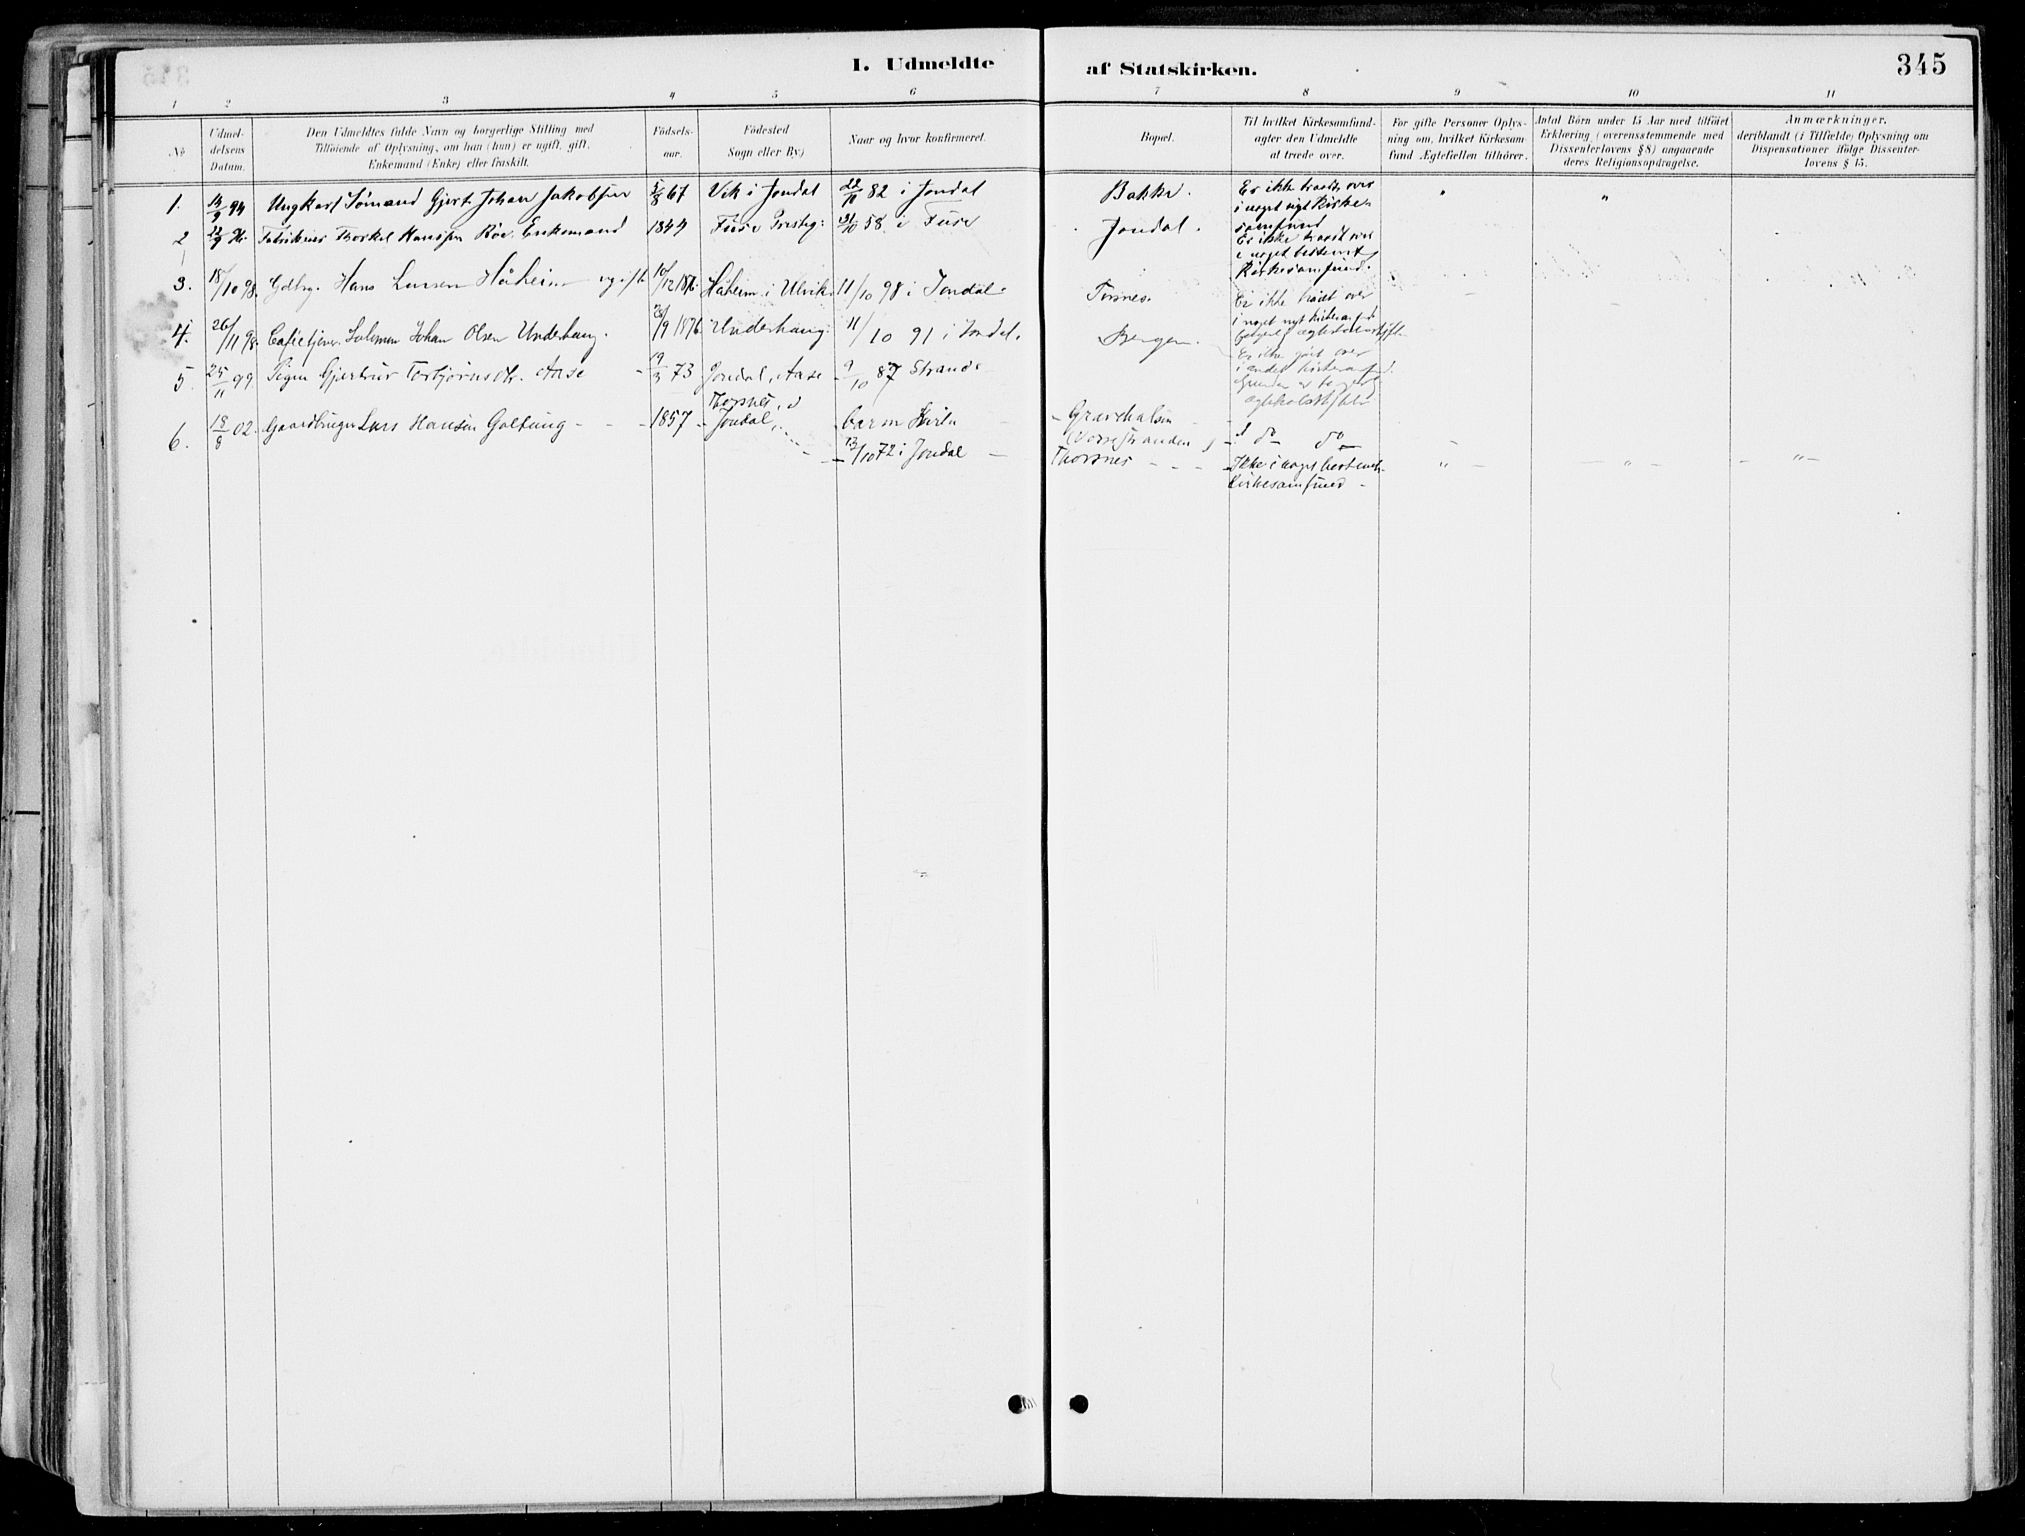 I. Udmeldte af Statskirken.
345
1 2 3 4 5 6 7 8 9 10 11
No
Udmel-
delsens
Datum.
Den Udmeldtes fulde Navn og borgerlige Stilling med
Tilföiende af Oplysning, om han (hun) er ugift, gift,
Enkemand (Enke) eller fraskilt.
Födsels-
aar.
Födested
Sogn eller By)
Naar og hvor konfirmeret.
Bopæl.
Til hvilket Kirkesamfund-
agter den Udmeldte
at træde over.
For gifte Personer Oplys-
ning om, hvilket Kirkesam
fund Ægtefællen tilhörer.
Antal Börn under 15 Aar med tilföiet
Erklæring (overensstemmende med
Dissenterlovens § 8) angaaende
deres Religionsopdragelse.
Anmærkninger,
deriblandt (i Tilfælde) Oplysning om
Dispensationer ifölge Dissenter-
lovens § 15.
1. 14/9 94 Ungkarl Sømand Gjert Johan Jakobsen 5/8 67 Vik i Jondal 22/10 82 i Jondal Bakke.
Er ikke traadt over
i noget nyt Kirke-
samfund
2 Thorkel Hanssen Enkemand 1844 Fuse Prestegj: 58 i Fuse Jondal.
Er ikke traadt over
i noget bestemt
Kirkesamfund.
3. 18/10 98. Gdbrg. Hans Larsen Håheim ugift 10/12 187 Håheim i Ulvik. 11/10 98 i Jondal. Torsnes.
Er ikke traadt over
i noget nyt Kirkesamfund
4. 26/11 98. Salomon Johan Olsen Underhaug. 1876 Underhaug. 11/10 91 i Jondal. Bergen.
5. 25/11 99 Pigen Gjertrud Torbjørnsdtr. Aase 19/3 73 Jondal, Aase 9/10 87 Strand
Er ikke gaaet over
Gravehalsen
(Vossestranden)
6. 15/8 02. Gaardbruger Lars Hansen Galtung 1857 Thorsnes, i
Jondal,
13/10 72 i Jondal Thorsnes
Ikke i noget bestemt
Kirkesamfund